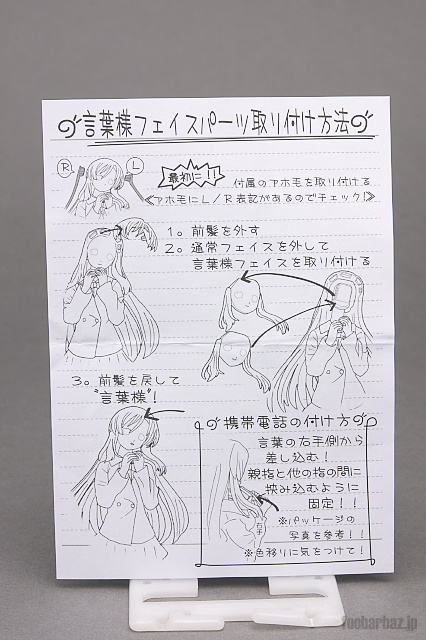 言葉様フェイスパーツ取り付け方法
R L
最初に!!
付属のアホ毛を取り付ける
≪アホ毛にL/R表記があるのでチェック!≫
1。前髪を外す
2。通常フェイスを外して
言葉様フェイスを取り付ける
3。前髪を戻して
"言葉様"!
携帯電話の付け方
言葉の右手側から
差し込む!
親指と他の指の間に
挟み込むように
固定!!
※パッケージの
写真を参考!!
※色移りに気をつけて!
foobarbaz.jp